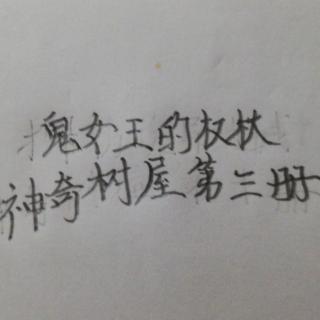 鬼女王的权杖
神奇树屋第三册